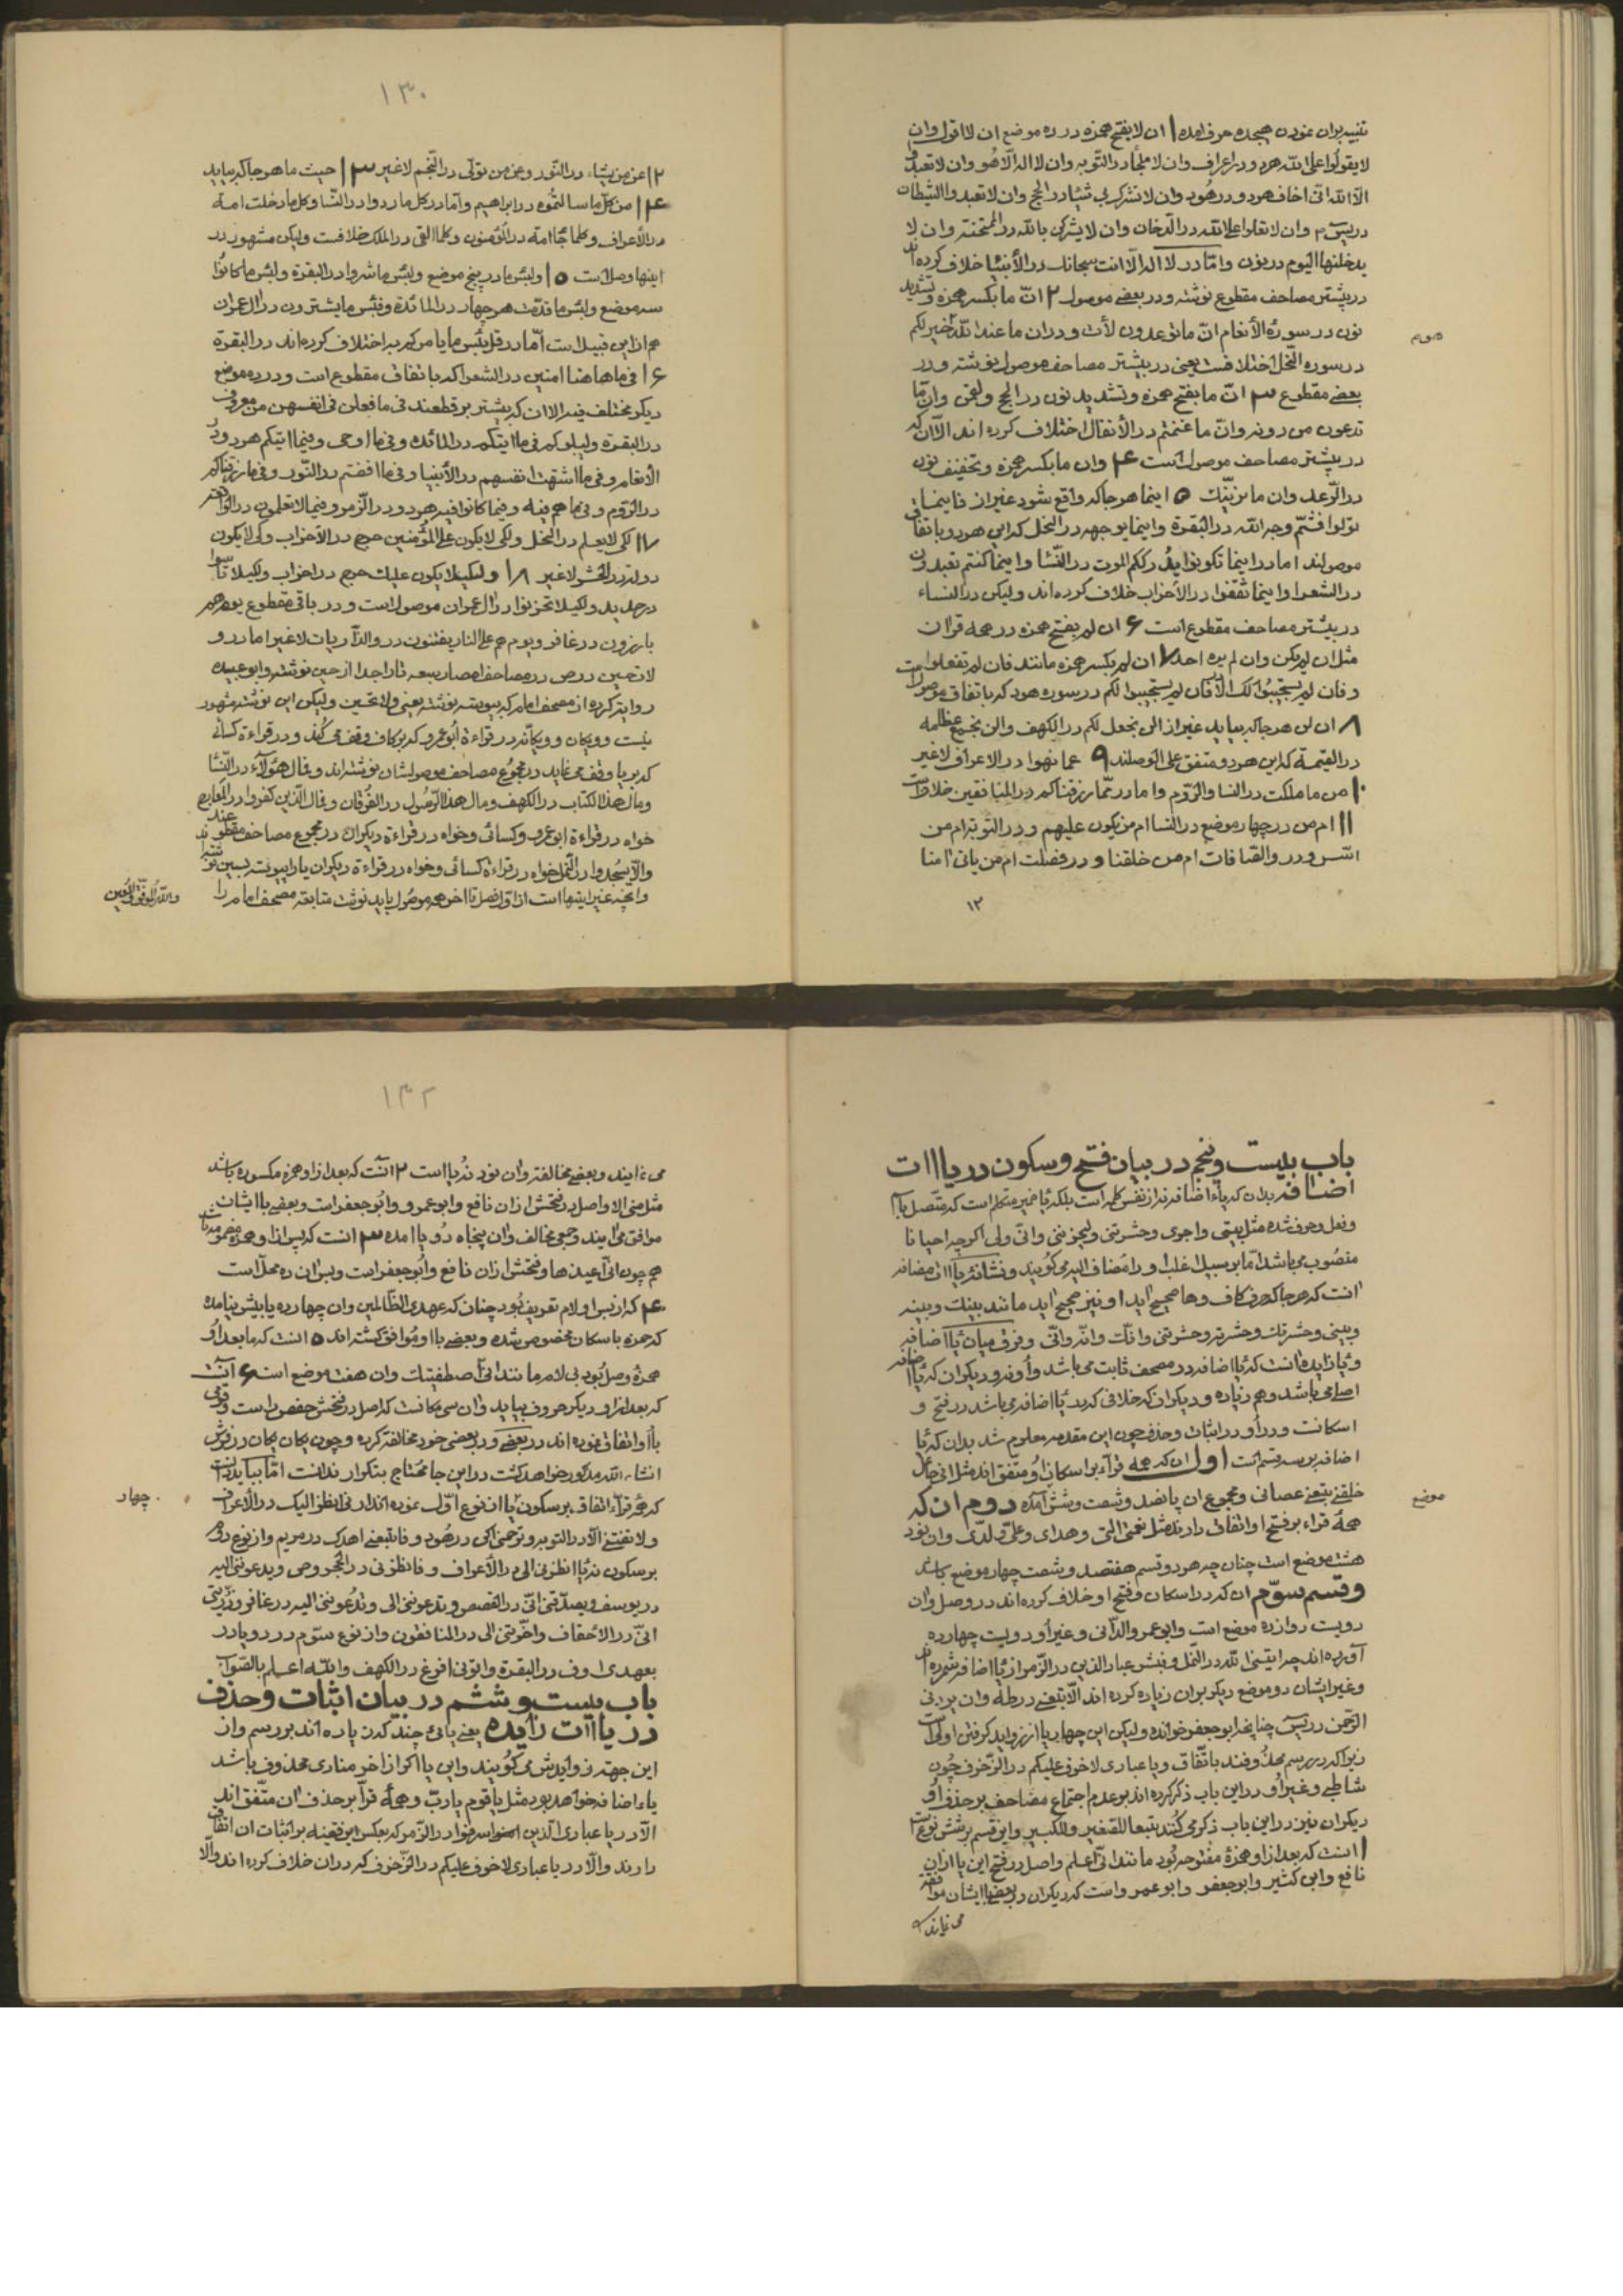 تنبیه بدان نمودن هیجده حرف آمده ۱ ان لا بفتح همزه در ده موضع ان لا اقول وان
لا یقولوا علی الله هر دو در اعراف وان لا ملجأ در التوبه وان لا اله الا هو وان لا تعبدوا
الا الله انی اخاف هر دو در هود وان لا تشرک بی شیئا در الحج وان لا تعبدوا الشیطان
در یس وان لا تعلوا علی الله در الدخان وان لا یشرکن بالله در الممتحنه وان لا
یدخلنها الیوم در نون واما در لا اله الا انت سبحانک در الأنبیا خلاف کرده اند
در بیشتر مصاحف مقطوع نوشته و در بعضی موصول ۲ انّ ما بکسر همزه وتشدید
نون در سورة الأنعام انّ ما توعدون لأت و در ان ما عند الله خیر لکم
سوم
در سوره النحل اختلافست یعنی در بیشتر مصاحف موصول نوشته و در
بعضی مقطوع ۳ انّ ما بفتح همزه وتشدید نون در الحج ولقمن وان ما
تدعون من دونه وانّ ما غنمتم در الأنفال اختلاف کرده اند الا ان که
در بیشتر مصاحف موصول است ۴ وان ما بکسر همزه وتخفیف نون
در الرعد وان ما نرینّک ۵ اینما هر جا که واقع شود غیر از فاینما
تولوا فثمّ وجه الله در البقرة واینما یوجهه در النحل که این هر دو باتفاق
موصولند اما در اینما تکونوا یدرککم الموت در النّسا واینما کنتم تعبدون
در الشعرا واینما ثقفوا در الأحزاب خلاف کرده اند ولیکن در النساء
در بیشتر مصاحف مقطوع است ۶ ان لم بفتح همزه در همه قران
مثل ان لم یکن وان لم یره احد ۷ ان لم بکسر همزه مانند فان لم تفعلوا
و فان لم یستجیبوا لک الا فان لم یستجیبوا لکم در سوره هود که باتفاق موصول است
۸ ان لن هر جا که بیاید غیر از الن نجعل لکم در الکهف والن نجمع عظامه
در القیمة که این هر دو متفق علی الوصلند ۹ عما نهوا در الاعراف لا غیر
۱۰ من ما ملکت در النسا والرّوم واما در ممّا رزقناکم در المنافقین خلافست
۱۱ ام من در چهار موضع در النسا ام من یکون علیهم و در التوبة ام من
اسّس و در والصّافات ام من خلقنا و در فصلت ام من یاتی امنا
۱۲
۱۳۰
۱۲ عن من یشاء در النّور وعن من تولّی در النّجم لا غیر ۱۳ حیث ما هر جا که بیاید
۱۴ من کلّ ما سالتموه در ابراهیم واما در کل ما ردوا در النّسا وکل ما دخلت امة
در الأعراف وکلما جا امة در المؤمنون وکلما القی در الملک خلافست ولیکن مشهور در
اینها وصل است ۱۵ ولبئس ما در پنج موضع ولبئس ما شروا در البقرة ولبئس ما کانوا
سه موضع ولبئس ما قدّمت هر چهار در المائدة وفبئس ما یشترون در آل عمران
هم از این قبیل است امّا در قل بئس ما یامرکم به اختلاف کرده اند در البقرة
۱۶ فی ما هاهنا امنین در الشعرا که باتفاق مقطوع است و در ده موضع
دیگر مختلف فیه الا ان که بیشتر بر قطعند فی ما فعلن فی انفسهن من معروف
در البقرة ولیبلوکم فی ما ایتکم در المائدة وفی ما اوحی وفیما ایتکم هر دو در
الأنعام وفی ما اشتهت انفسهم در الأنبیا وفی ما افضتم در النّور وفی ما رزقناکم
در الرّوم وفی ما هم فیه وفیما کانوا فیه هر دو در الزّمر وفیما لا تعلمون در الواقعة
۱۷ لکی لا یعلم در النحل ولکی لا یکون علی المؤمنین حرج در الأحزاب وکی لا یکون
دولة در الحشر لا غیر ۱۸ ولکیلا یکون علیک حرج در احزاب ولکیلا تاسوا
در حدید ولکیلا تحزنوا در آل عمران موصول است و در باقی مقطوع یوم هم
بارزون در غافر ویوم هم علی النار یفتنون در والذّاریات لا غیر اما در و
لاتحین در ص در مصاحف امصار سبعه تا را جدا از حین نوشته وابو عبیده
روایت کرده از مصحف امام که پیوسته نوشته یعنی ولا تحین ولیکن این نوشته مشهور
نیست وویکان وویکانّه در قراءة ابو عمرو که بر کاف وقف می کند و در قراءة کسائی
که بر یا وقف می نماید در مجموع مصاحف موصولشان نوشته اند وفمال هؤلآء در النّسا
ومال هذا الکتاب در الکهف ومال هذا الرّسول در الفرقان وفمال الّذین کفروا در المعارج
خواه در قراءة ابو عمرو وکسائی وخواه در قراءة دیگران در مجموع مصاحف مقطوعند
والّا یسجدوا در النّمل خواه در قراءة کسائی وخواه در قراءة دیگران یا را پیوسته بسین نوشته
وانچه غیر اینها است از اوّل فصل تا اخر همه موصول باید نوشت متابعة مصحف امام را
والله الموفق المعین
باب بیست و پنجم در بیان فتح وسکون در یاات
اضافه بدان که یاء اضافه نه از نفس کلمه است بلکه یا ضمیر متکلم است که متصل باسم
وفعل وحرف شده مثل بیتی واجری وحشرتنی ولیحزننی وانی ولی اگر چه احیانا
منصوب می باشد امّا بر سبیل اغلب او را مضاف الیه می گویند ونشانه یاات مضافه
انست که هر جا که حرف کاف وها صحیح اید او نیز صحیح اید مانند بیتک وبیته
وبیتی وحشرتک وحشرته وحشرتنی وانّک وانّه وانّی وفرق میان یا اضافه
ویا زایده انست که یا اضافه در مصحف ثابت می باشد
اصلی می باشد وهم زیاده و دیگر ان که خلافی که در یا اضافه می باشد در فتح و
اسکانست و در او در اثبات وحذف چون این مقدمه معلوم شد بدان که یا
اضافه بر سه قسم است اول ان که همه قرآء بر اسکان او متفق اند مثل انی جاعل
خلقنی یتبعنی عصانی ومجموع ان پانصد وشصت وشش آمده دوم ان که
موضع
همه قراء بر فتح او اتفاق دارند مثل نعمتی التی وهدای وعلیّ ولدیّ وان نود
هشت موضع است چنان چه هر دو قسم هفتصد وشصت چهار موضع باشد
وقسم سوّم ان که در اسکان وفتح او خلاف کرده اند در وصل وان
دویست دوازده موضع است وابو عمرو الدّانی وغیر او دویست چهارده
آورده اند چه ایتنی الله در النمل وفبشر عباد الذین در الزّمر از یا اضافه شمرده اند
وغیر ایشان دو موضع دیگر بر ان زیاده کرده اند الا تتبعنی در طه وان یردنی
الرّحمن در یس چنانچه ابو جعفر خوانده ولیکن این چهار یا از زواید گرفتن اولی است
زیرا که در رسم محذوفند باتّفاق ویا عبادی لا خوف علیکم در الزّخرف چون
شاطبی وغیر او در این باب ذکر کرده اند بر عدم اجتماع مصاحف بر حذف او
دیگران نیز در این باب ذکر می کنند تبعا للصّغیر وللکبیر واین قسم بر شش نوع است
۱ انست که بعد از او همزه مفتوحه بود مانند انّی اعلم واصل در فتح این یا از ان
نافع وابن کثیر وابو جعفر وابو عمرو است که دیگران در بعضی با ایشان موافقه
می نمایند
۱۳۲
می نمایند وبعضی مخالفة وان نود نه یا است ۲ آنست که بعد از او همزه مکسوره باشد
مثل منی الا واصل در فتحش از ان نافع وابو عمرو وابو جعفر است وبعضی با ایشان
موافق می ایند وجمعی مخالف وان پنجاه دو یا امده ۳ انست که پس از او همزه مضمومه باشد
هم چون انّی اعیذها وفتحش از ان نافع وابو جعفر است وبس وان ده محل است
۴ که از پس او لام تعریف بود چنان که عهدی الظّالمین وان چهارده یا بیش نیامده
که حمزه باسکان مخصوص شده وبعضی با او موافق گشته اند ۵ انست که ما بعد او
همزه وصل بود بی لام مانند انّی اصطفیتک وان هفت موضع است ۶ آنست
که بعد از او دیگر حروف بیاید وان سی مکانست که اصل در فتحش حفص راست وقومی
با او اتفاق نموده اند در بعضی ودر بعضی خود مخالفة کرده وچون یکان یکان در فرش
انشاء الله مذکور خواهد گشت در این جا محتاج بتکرار ندانست امّا بباید دانست
چهار
که همه قرآء اتفاقند بر سکون یا ان نوع اوّل نموده اند ارنی انظر الیک در الأعراف
ولا تفتنی الا در التوبه وترحمنی اکن در هود وفاتبعنی اهدک در مریم واز نوع دوم
بر سکون نه یا انظرنی الی در الأعراف وفانظرنی در الحجر وص ویدعوننی الیه
در یوسف ویصدّقنی انّی در القصص وتدعوننی الی وتدعوننی الیه در غافر وذرّیتی
انّی در الأحقاف واخّرتنی الی در المنافقون واز نوع سوّم در دو یا در
بعهدی اوف در البقرة واتونی افرغ در الکهف والله اعلم بالصّواب
باب بیست و ششم در بیان اثبات وحذف
در یاات زایده یعنی یائی چند که زیاده اند بر رسم واز
این جهة زوایدش می گویند واین یا اگر از اخر منادی محذوف باشد
یاء اضافه خواهد بود مثل یا قوم یا ربّ وهمه قرآ بر حذف ان متّفق اند
الا در یا عبادی الّذین اسرفوا در الزّمر که بعکس این قضیه بر اثبات ان اتفاق
دارند والا در یا عبادی لا خوف علیکم در الزّخرف که در ان خلاف کرده اند والّا